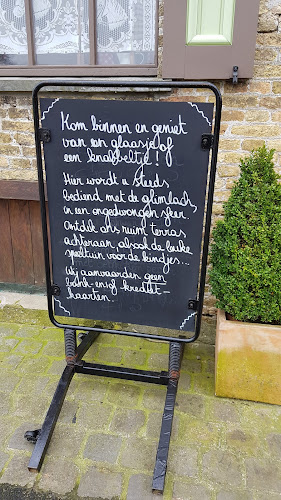 Kom binnen en geniet
van een glaasje of
een knabbeltje!
Hier wordt u steeds
bediend met de glimlach
in een ongedwongen sfeer.
Ontdek ons ruim terras
achteraan, alsook de leuke
speeltuin voor de kindjes...
Wij aanvaarden geen
bank- en/of krediet-
kaarten.